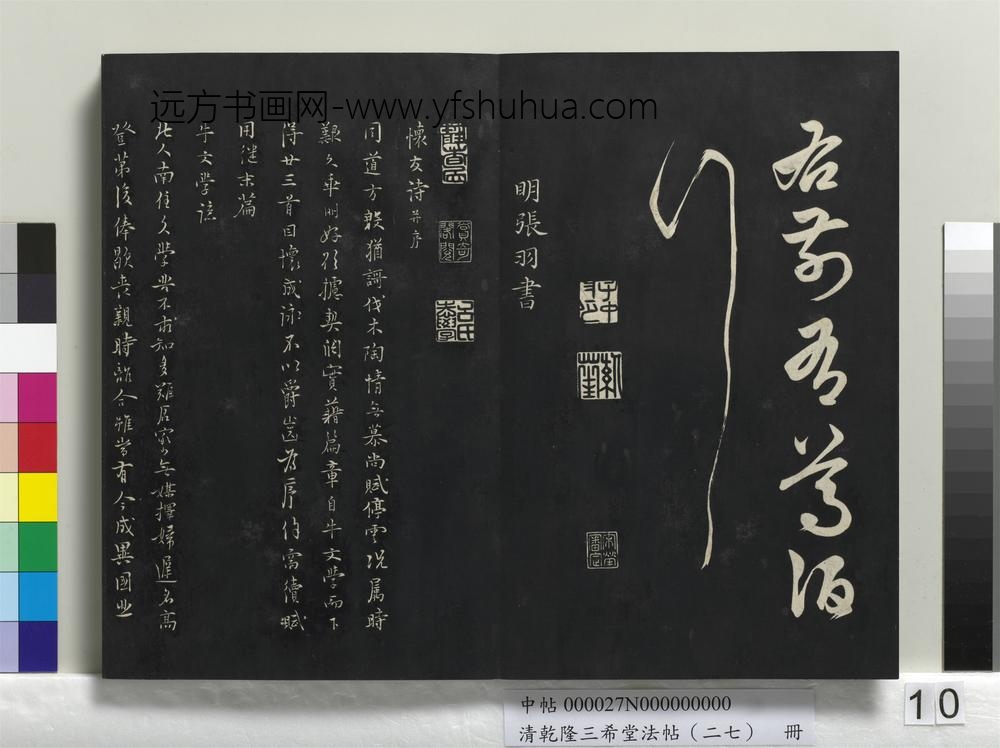 远方书画网-www.yfshuhua.com
右前有尊酒
行
明張羽書
懷友詩并序
同道方穀猶謌伐木陶情無慕尚賦停雲況属時
艱久乖朋好欵攄契闊實藉篇章自牛文學而下
得廿三首因懷成詠不以爵齒為序仍需續賦
用继末篇
牛文學諒
此人南住久學业不求知多難居家無媒擇婦遲名高
登第後俸歇喪親時韶合雖嘗有今成異國悲
中帖 000027N000000000
清乾隆三希堂法帖（二七） 冊
10